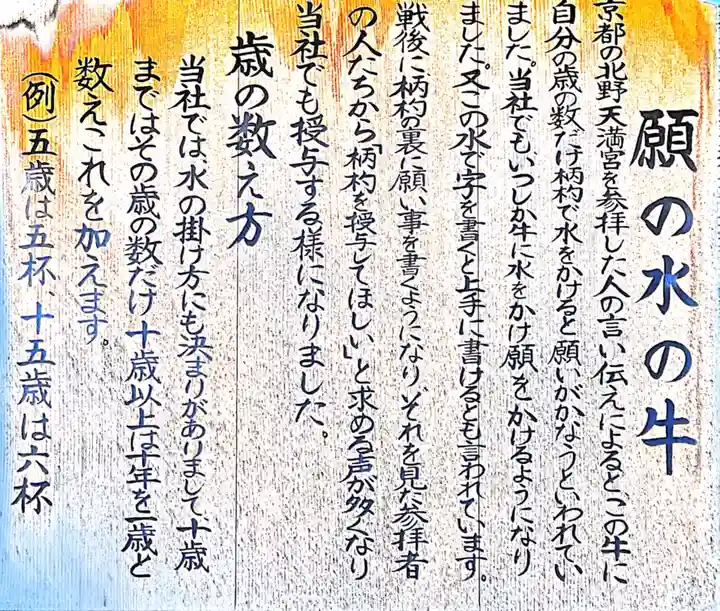 願の水の牛
京都の北野天満宮を参拝した人の言い伝えによると、この牛に
自分の歳の数だけ柄杓で水をかけると願いがかなうといわれてい
ました。当社でもいつしか牛に水をかけ願をかけるようになり
ました。又この水で字を書くと上手に書けるとも言われています。
戦後に柄杓の裏に願い事を書くようになり、それを見た参拝者
の人たちから「柄杓を授与してほしい」と求める声が多くなり
当社でも授与する様になりました。
歳の数え方
当社では、水の掛け方にも決まりがありまして、十歳
まではその歳の数だけ十歳以上は十年を一歳と
数えこれを加えます。
(例)五歳は五杯、十五歳は六杯